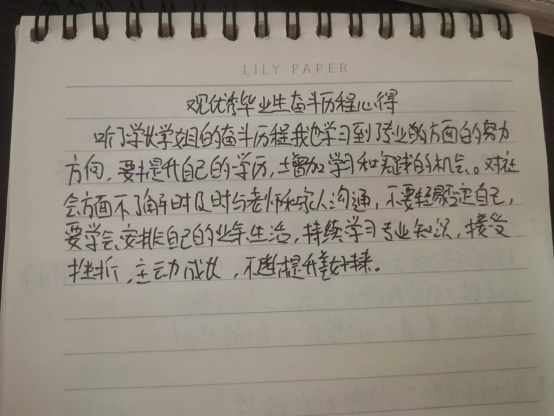 LILY PAPER
观优秀毕业生奋斗历程心得
听了学长学姐的奋斗历程我也学习到了专业的方面的努力
方向,要提升自己的学历,增加学习和实践的机会。对社
会方面不了解时及时与老师和家人沟通,不要轻易否定自己,
要学会安排自己的生活,持续学习专业知识,接受
挫折,主动成长,不断提升